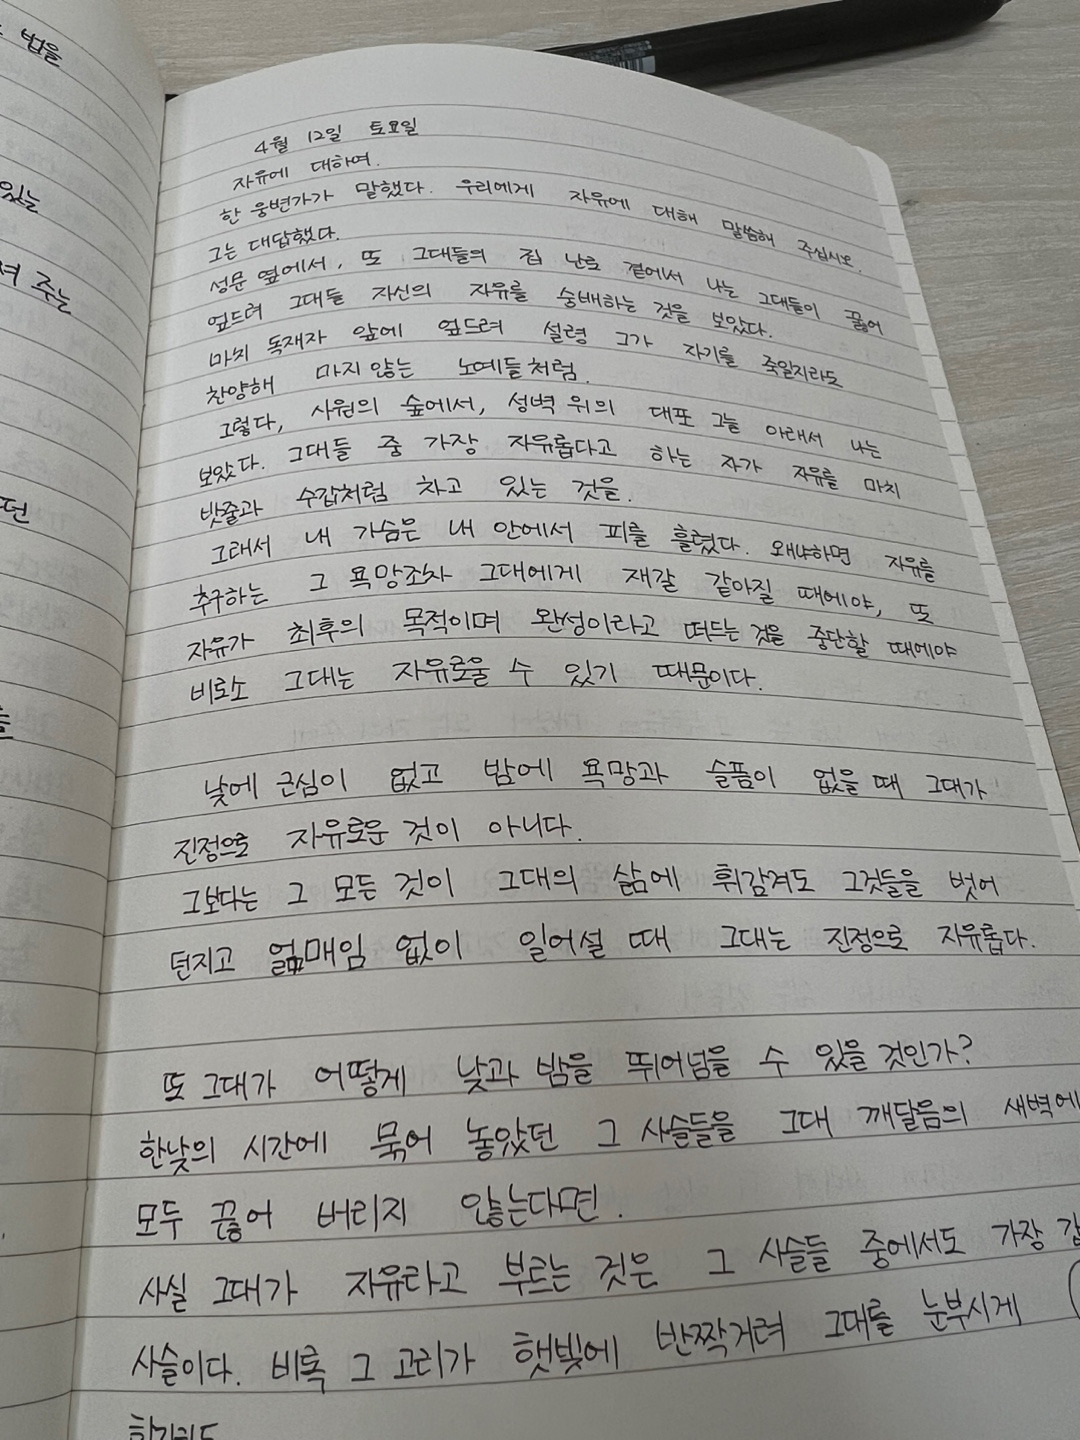 법을
있는
져 주는
던
4월 12일 토요일
자유에 대하여.
한 웅변가가 말했다. 우리에게 자유에 대해 말씀해 주십시오.
그는 대답했다.
성문 옆에서, 또 그대들의 집 난로 곁에서 나는 그대들이 꿇어
엎드려 그대들 자신의 자유를 숭배하는 것을 보았다.
마치 독재자 앞에 엎드려 설령 그가 자기를 죽일지라도
찬양해 마지않는 노예들처럼.
그렇다, 사원의 숲에서, 성벽 위의 대포 그늘 아래서 나는
보았다. 그대들 중 가장 자유롭다고 하는 자가 자유를 마치
밧줄과 수갑처럼 차고 있는 것을.
그래서 내 가슴은 내 안에서 피를 흘렸다. 왜냐하면 자유를
추구하는 그 욕망조차 그대에게 재갈 같아질 때에야, 또
자유가 최후의 목적이며 완성이라고 떠드는 것을 중단할 때에야
비로소 그대는 자유로울 수 있기 때문이다.
낮에 근심이 없고 밤에 욕망과 슬픔이 없을 때 그대가
진정으로 자유로운 것이 아니다.
그보다는 그 모든 것이 그대의 삶에 휘감겨도 그것들을 벗어
던지고 얽매임 없이 일어설 때 그대는 진정으로 자유롭다.
또 그대가 어떻게 낮과 밤을 뛰어넘을 수 있을 것인가?
한낮의 시간에 묶어 놓았던 그 사슬들을 그대 깨달음의 새벽에
모두 끊어 버리지 않는다면.
사실 그대가 자유라고 부르는 것은 그 사슬들 중에서도 가장
사슬이다. 비록 그 고리가 햇빛에 반짝거려 그대를 눈부시게